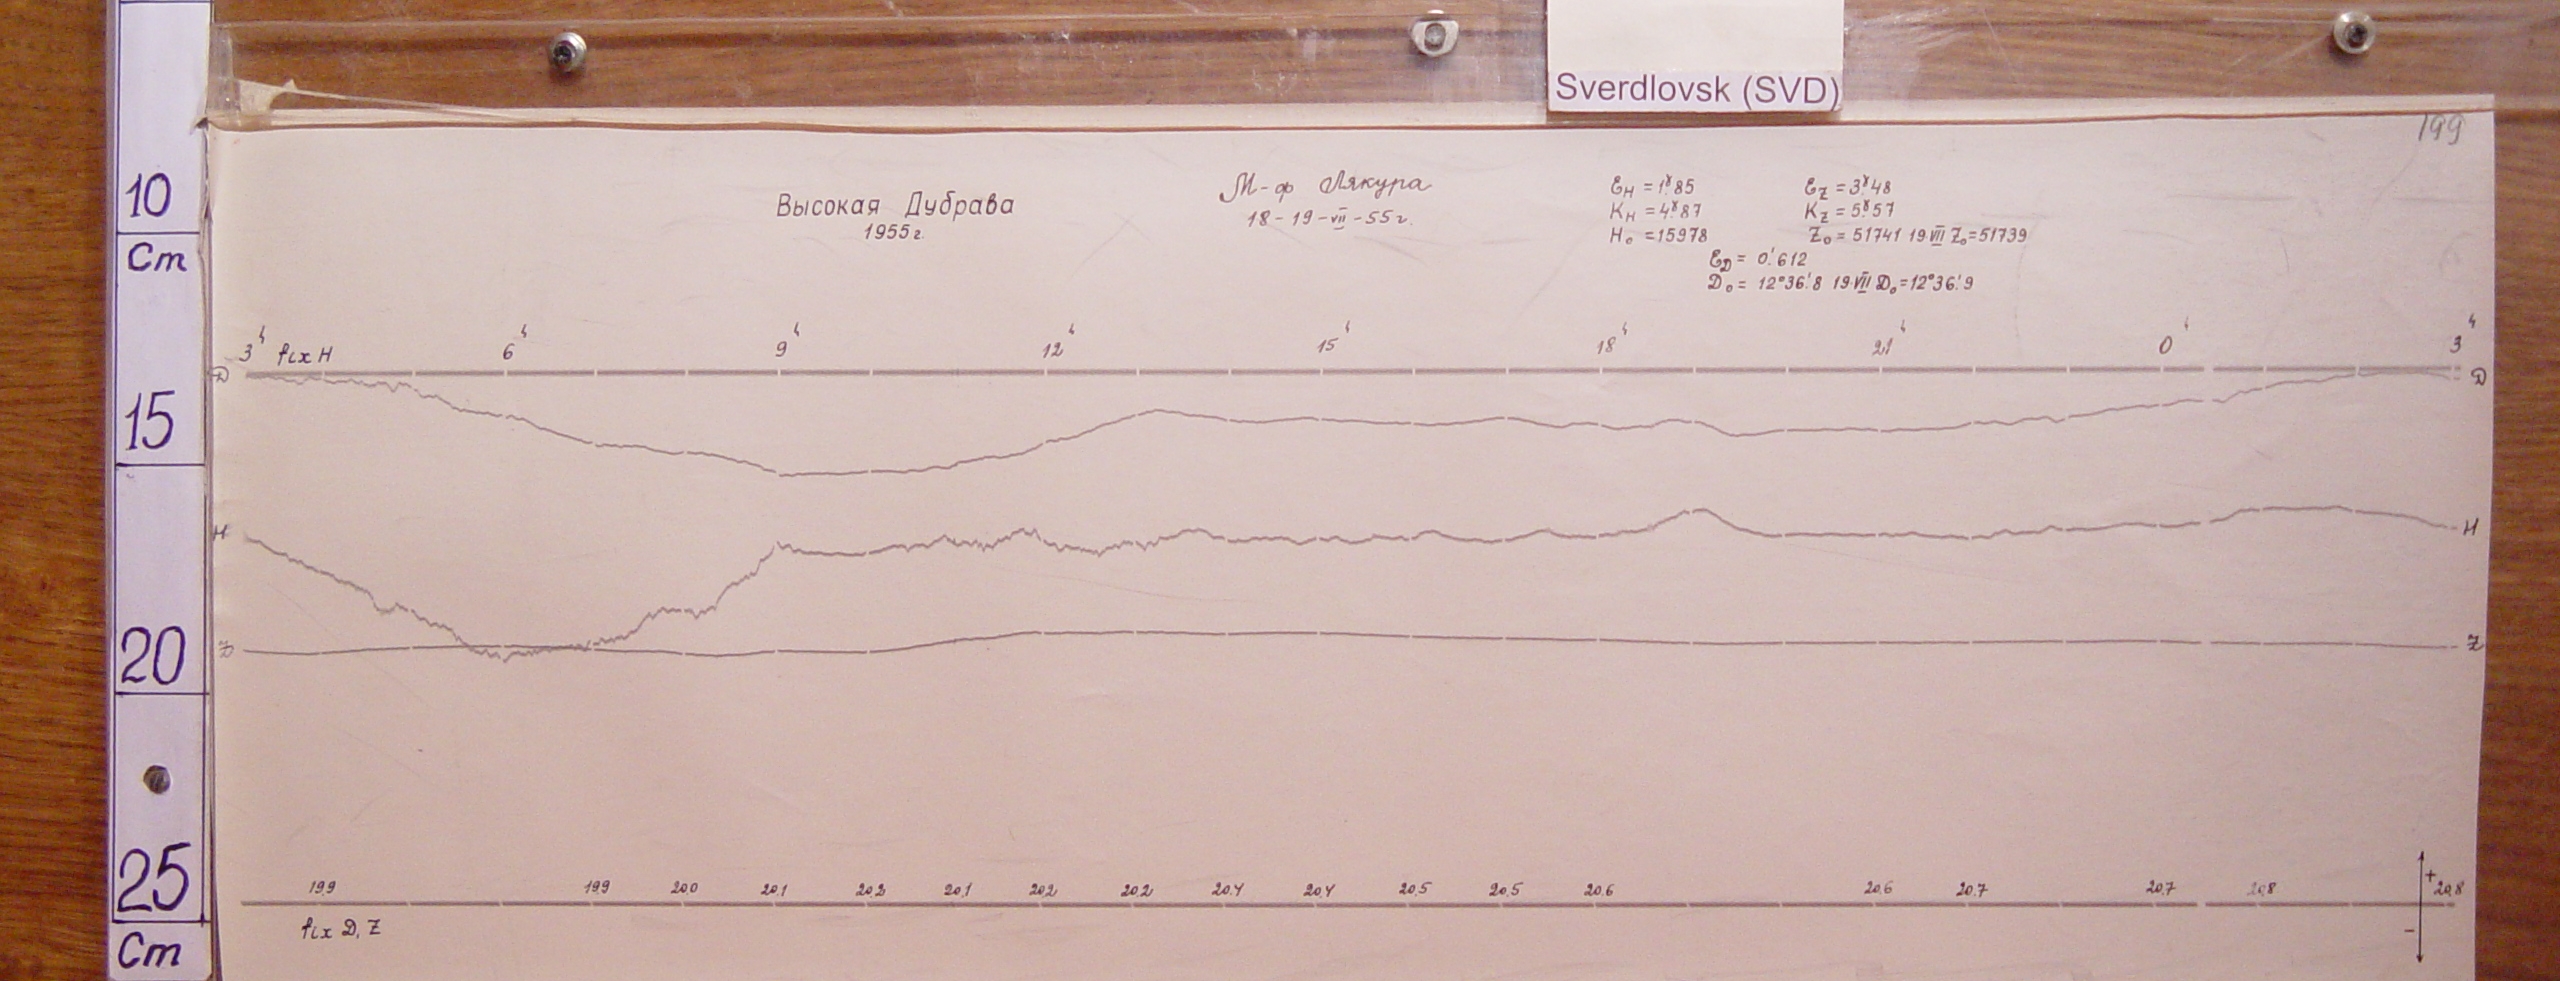 Sverdlovsk (SVD)
199
10
Cm
15
20
25
Cm
Высокая Дубрава
1955 г.
М-ф Лякура
18-19-VII-55 г.
ε_H = 1^γ.85
K_H = 4^γ.87
H₀ = 15978
ε_Z = 3^γ.48
K_Z = 5^γ.57
Z₀ = 51741 19.VII Z₀ = 51739
ε_D = 0'.612
D₀ = 12°36'.8 19.VII D₀ = 12°36'.9
3ч 6ч 9ч 12ч 15ч 18ч 21ч 0ч 3ч
fix H
D D
H H
Z Z
19,9 19,9 20,0 20,1 20,2 20,1 20,2 20,2 20,4 20,4 20,5 20,5 20,6 20,6 20,7 20,7 20,8 + 20,8
fix D, Z
-